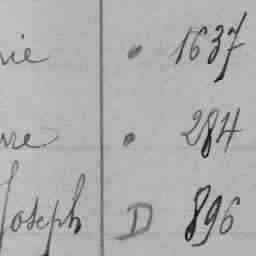 • 1637
• 284
Joseph D 896